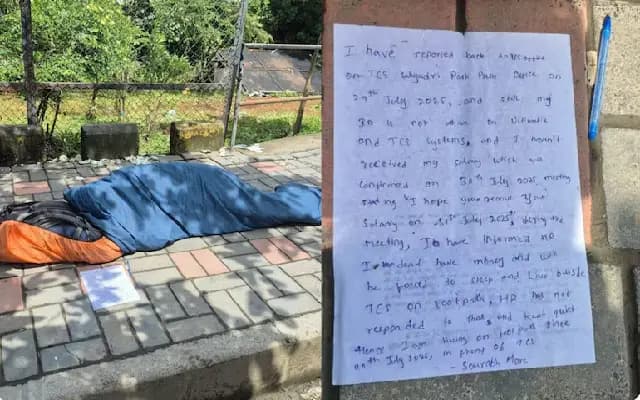 I have reported back
on TCS Sahyadri Park Pune Office on
29th July 2025, and still my
ID is not active on Ultimatix
and TCS systems, and I haven't
received my salary which was
confirmed on 30th July 2025 meeting
stating "I hope you receive
Salary on 31st July 2025", during the
meeting, I have informed HR
I don't have money and will
be forced to sleep and live outside
TCS on footpath, HR has not
responded to this, and kept quiet
Hence I am living on footpath since
29th July 2025, in front of TCS
- Saurabh More